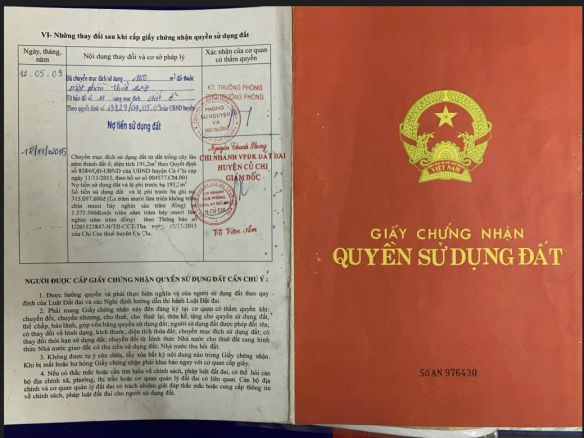 VI- Những thay đổi sau khi cấp giấy chứng nhận quyền sử dụng đất
Ngày, tháng, năm
Nội dung thay đổi và cơ sở pháp lý
Xác nhận của cơ quan có thẩm quyền
12.05.09
Đã chuyển mục đích sử dụng 100 m² đất thuộc
một phần thửa
Tờ bản đồ số 11 sang mục đích đất ở
Theo quyết định số 3829/ 04.05.09 của UBND huyện
Nợ tiền sử dụng đất
KT TRƯỞNG PHÒNG
PHÓ TRƯỞNG PHÒNG
PHÒNG
TÀI NGUYÊN
VÀ
MÔI TRƯỜNG
Nguyễn Thanh Phong
18/11/2015
Chuyển mục đích sử dụng đất từ đất trồng cây lâu
năm thành đất ở, diện tích 191,2m² theo Quyết định
số 8584/QĐ-UBND của UBND huyện Củ Chi cấp
ngày 11/11/2015, theo hồ sơ số 004577.CM.001
Nợ tiền sử dụng đất và lệ phí trước bạ 191,2m²
Số tiền sử dụng đất và lệ phí trước bạ ghi nợ
315.097.600đ (Ba trăm mười lăm triệu không trăm
chín mươi bảy nghìn sáu trăm đồng)
1.575.500đ(một triệu năm trăm bảy mươi lăm
nghìn năm trăm đồng) theo Thông báo số
U201523847-N/TB-CCT-Tba ngày /2015
của Chi Cục thuế huyện Củ Chi.
CHI NHÁNH VPĐK ĐẤT ĐAI
HUYỆN CỦ CHI
GIÁM ĐỐC
CHI NHÁNH
H.CỦ CHI
Võ Văn
NGƯỜI ĐƯỢC CẤP GIẤY CHỨNG NHẬN QUYỀN SỬ DỤNG ĐẤT CẦN CHÚ Ý :
1. Được hưởng quyền và phải thực hiện nghĩa vụ của người sử dụng đất theo quy
định của Luật Đất đai và các Nghị định hướng dẫn thi hành Luật Đất đai.
2. Phải mang Giấy chứng nhận này đến đăng ký tại cơ quan có thẩm quyền khi:
chuyển đổi, chuyển nhượng, cho thuê, cho thuê lại, thừa kế, tặng cho quyền sử dụng đất,
thế chấp, bảo lãnh, góp vốn bằng quyền sử dụng đất; người sử dụng đất được phép đổi tên;
có thay đổi về hình dạng, kích thước, diện tích thửa đất; chuyển mục đích sử dụng đất; có
thay đổi thời hạn sử dụng đất; chuyển đổi từ hình thức Nhà nước cho thuê đất sang hình
thức Nhà nước giao đất có thu tiền sử dụng đất; Nhà nước thu hồi đất.
3. Không được tự ý sửa chữa, tẩy xóa bất kỳ nội dung nào trong Giấy chứng nhận.
Khi bị mất hoặc hư hỏng Giấy chứng nhận phải khai báo ngay với cơ quan cấp giấy.
4. Nếu có thắc mắc hoặc cần tìm hiểu về chính sách, pháp luật đất đai, có thể hỏi cán
bộ địa chính xã, phường, thị trấn hoặc cơ quan quản lý đất đai có liên quan. Cán bộ địa
chính và cơ quan quản lý đất đai có trách nhiệm giải đáp thắc mắc hoặc cung cấp thông tin
về chính sách, pháp luật đất đai cho người sử dụng đất.
VIỆT NAM
GIẤY CHỨNG NHẬN
QUYỀN SỬ DỤNG ĐẤT
Số AN 976430